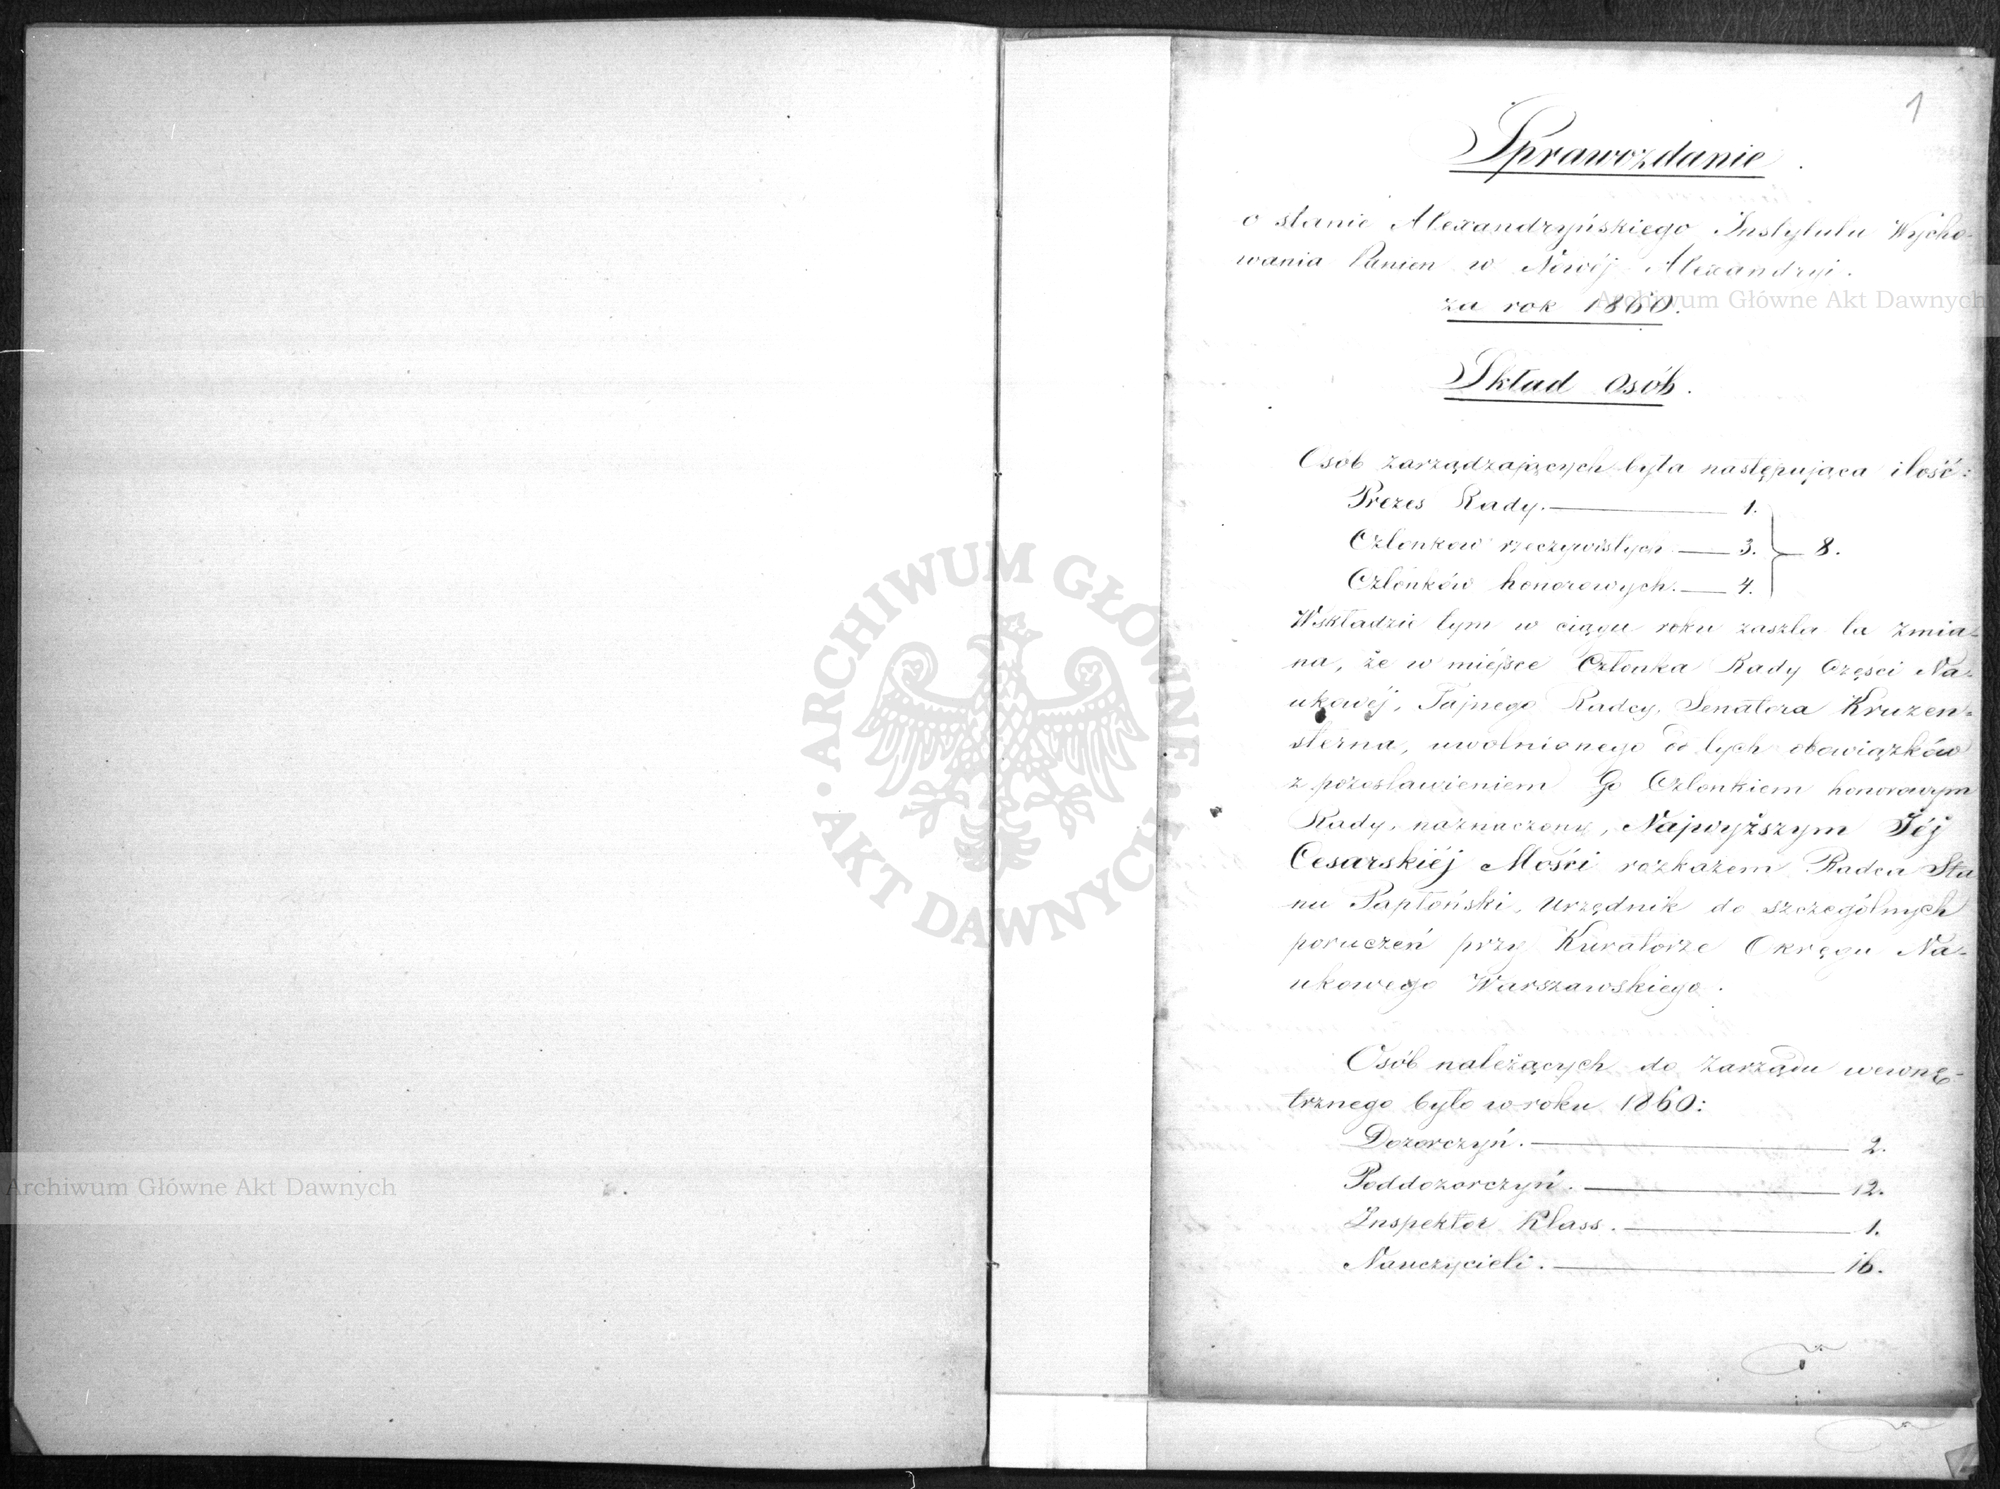 1
Sprawozdanie
o stanie Alexandryńskiego Instytutu Wycho-
wania Panien w Nowéj Alexandryi.
za rok 1860.
Skład osób.
Osób zarządzających była następująca ilość:
Prezes Rady. 1.
Członków rzeczywistych 3. 8.
Członków honorowych. 4.
Wskładzie tym w ciągu roku zaszła ta zmia-
na, że w miéjsce Członka Rady Części Na-
ukowéj, Tajnego Radcy, Senatora Kruzen-
sterna, uwolnionego od tych obowiązków
z pozostawieniem Go Członkiem honorowym
Rady, naznaczony, Najwyższym Jéj
Cesarskiéj Mości rozkazem Radca Sta
nu Papłoński, Urzędnik do szczególnych
poruczeń przy Kuratorze Okręgu Na-
ukowego Warszawskiego.
Osób należących do Zarządu wewnę-
trznego było w roku 1860:
Dozorczyń. 2.
Poddozorczyń. 12.
Inspektor Klass. 1.
Nauczycieli. 16.
Archiwum Główne Akt Dawnych
ARCHIWUM GŁÓWNE AKT DAWNYCH
Archiwum Główne Akt Dawnych